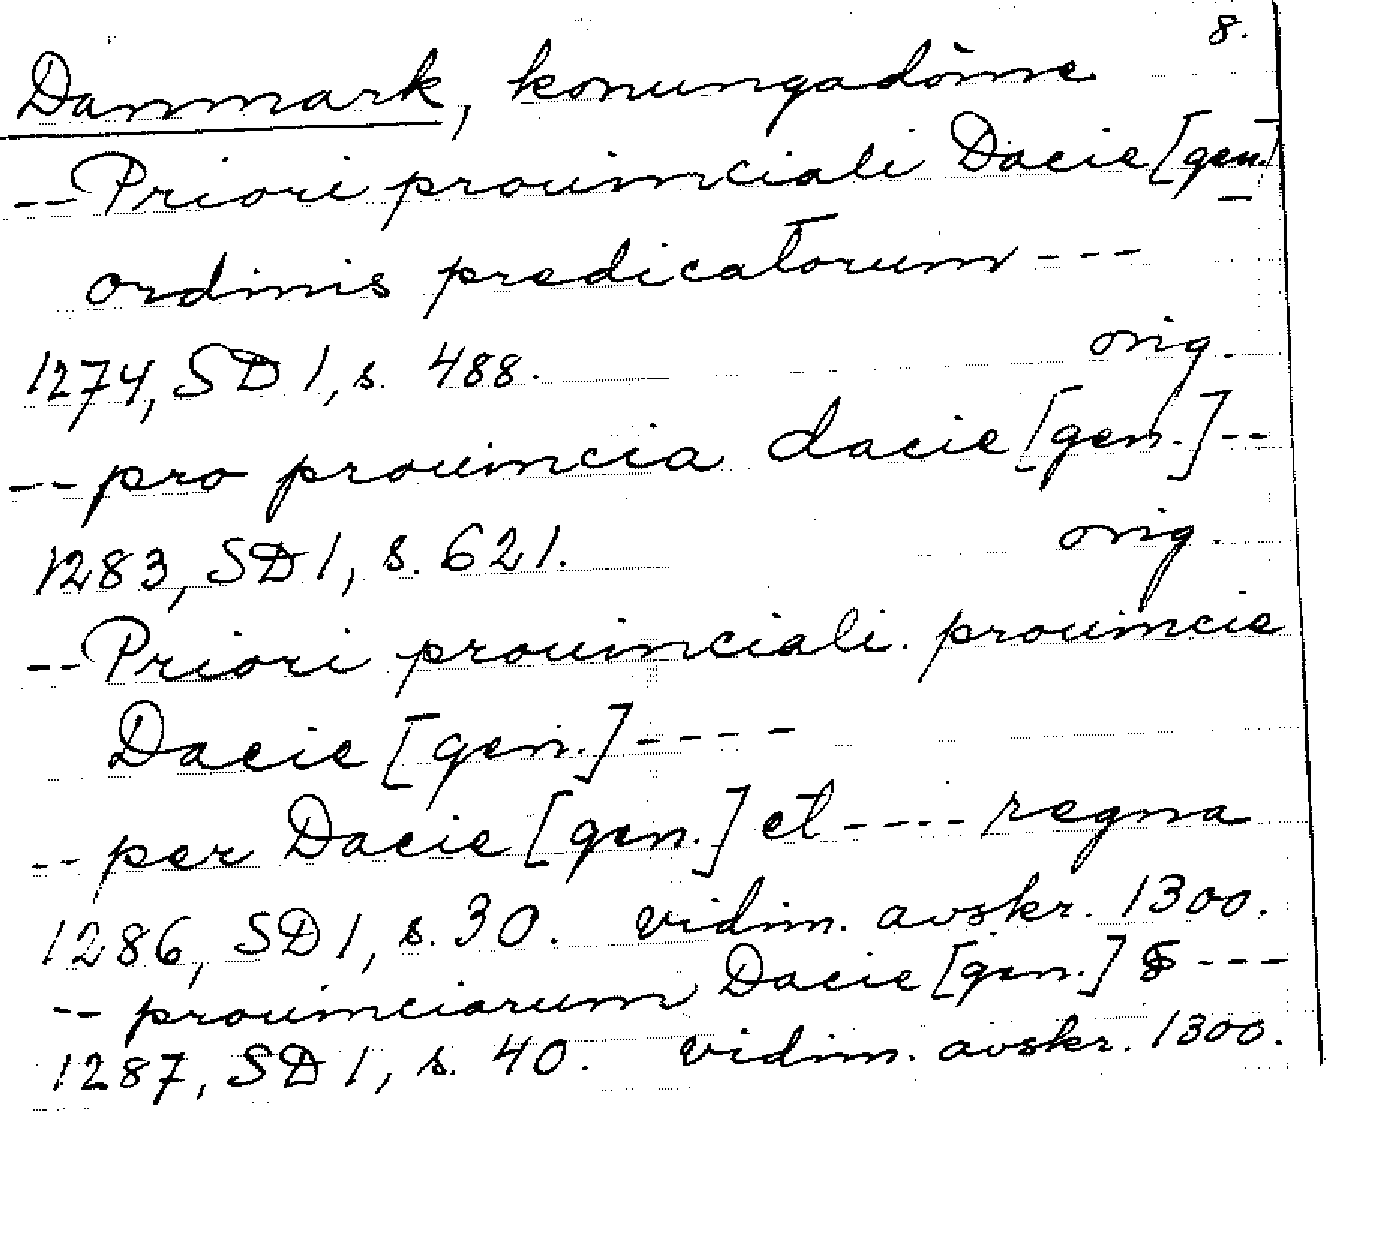 8.
Danmark, konungadöme
--Priori prouinciali Dacie [gen.]
ordinis predicatorum ---
1274, SD 1, s. 488. orig.
--pro prouincia dacie [gen.]--
1283, SD 1, s. 621. orig.
--Priori prouinciali. prouincie
Dacie [gen.]----
-- per Dacie [gen.] et ---- regna
1286, SD 1, s. 30. vidim. avskr. 1300.
-- prouinciarum Dacie [gen.] ---
1287, SD 1, s. 40. vidim. avskr. 1300.